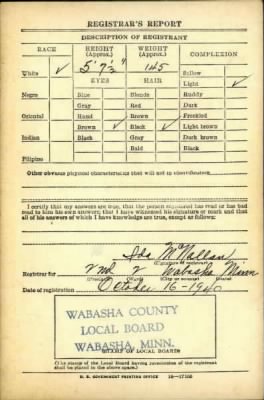 REGISTRAR'S REPORT
DESCRIPTION OF REGISTRANT
RACE HEIGHT (Approx.) WEIGHT (Approx.) COMPLEXION
White ✓ 5' 7½" 145 Sallow
EYES HAIR Light ✓
Negro Blue Blonde Ruddy
Gray Red Dark
Oriental Hazel Brown Freckled
Brown ✓ Black ✓ Light brown
Indian Black Gray Dark brown
Bald Black
Filipino
Other obvious physical characteristics that will aid in identification
I certify that my answers are true; that the person registered has read or has had
read to him his own answers; that I have witnessed his signature or mark and that
all of his answers of which I have knowledge are true, except as follows:
Ida McNallan
(Signature of registrar)
Registrar for 2nd Wabasha Minn
Date of registration October 16-1940
WABASHA COUNTY
LOCAL BOARD
WABASHA, MINN.
(STAMP OF LOCAL BOARD)
(The stamp of the Local Board having jurisdiction of the registrant
shall be placed in the above space.)
U. S. GOVERNMENT PRINTING OFFICE 16-17105